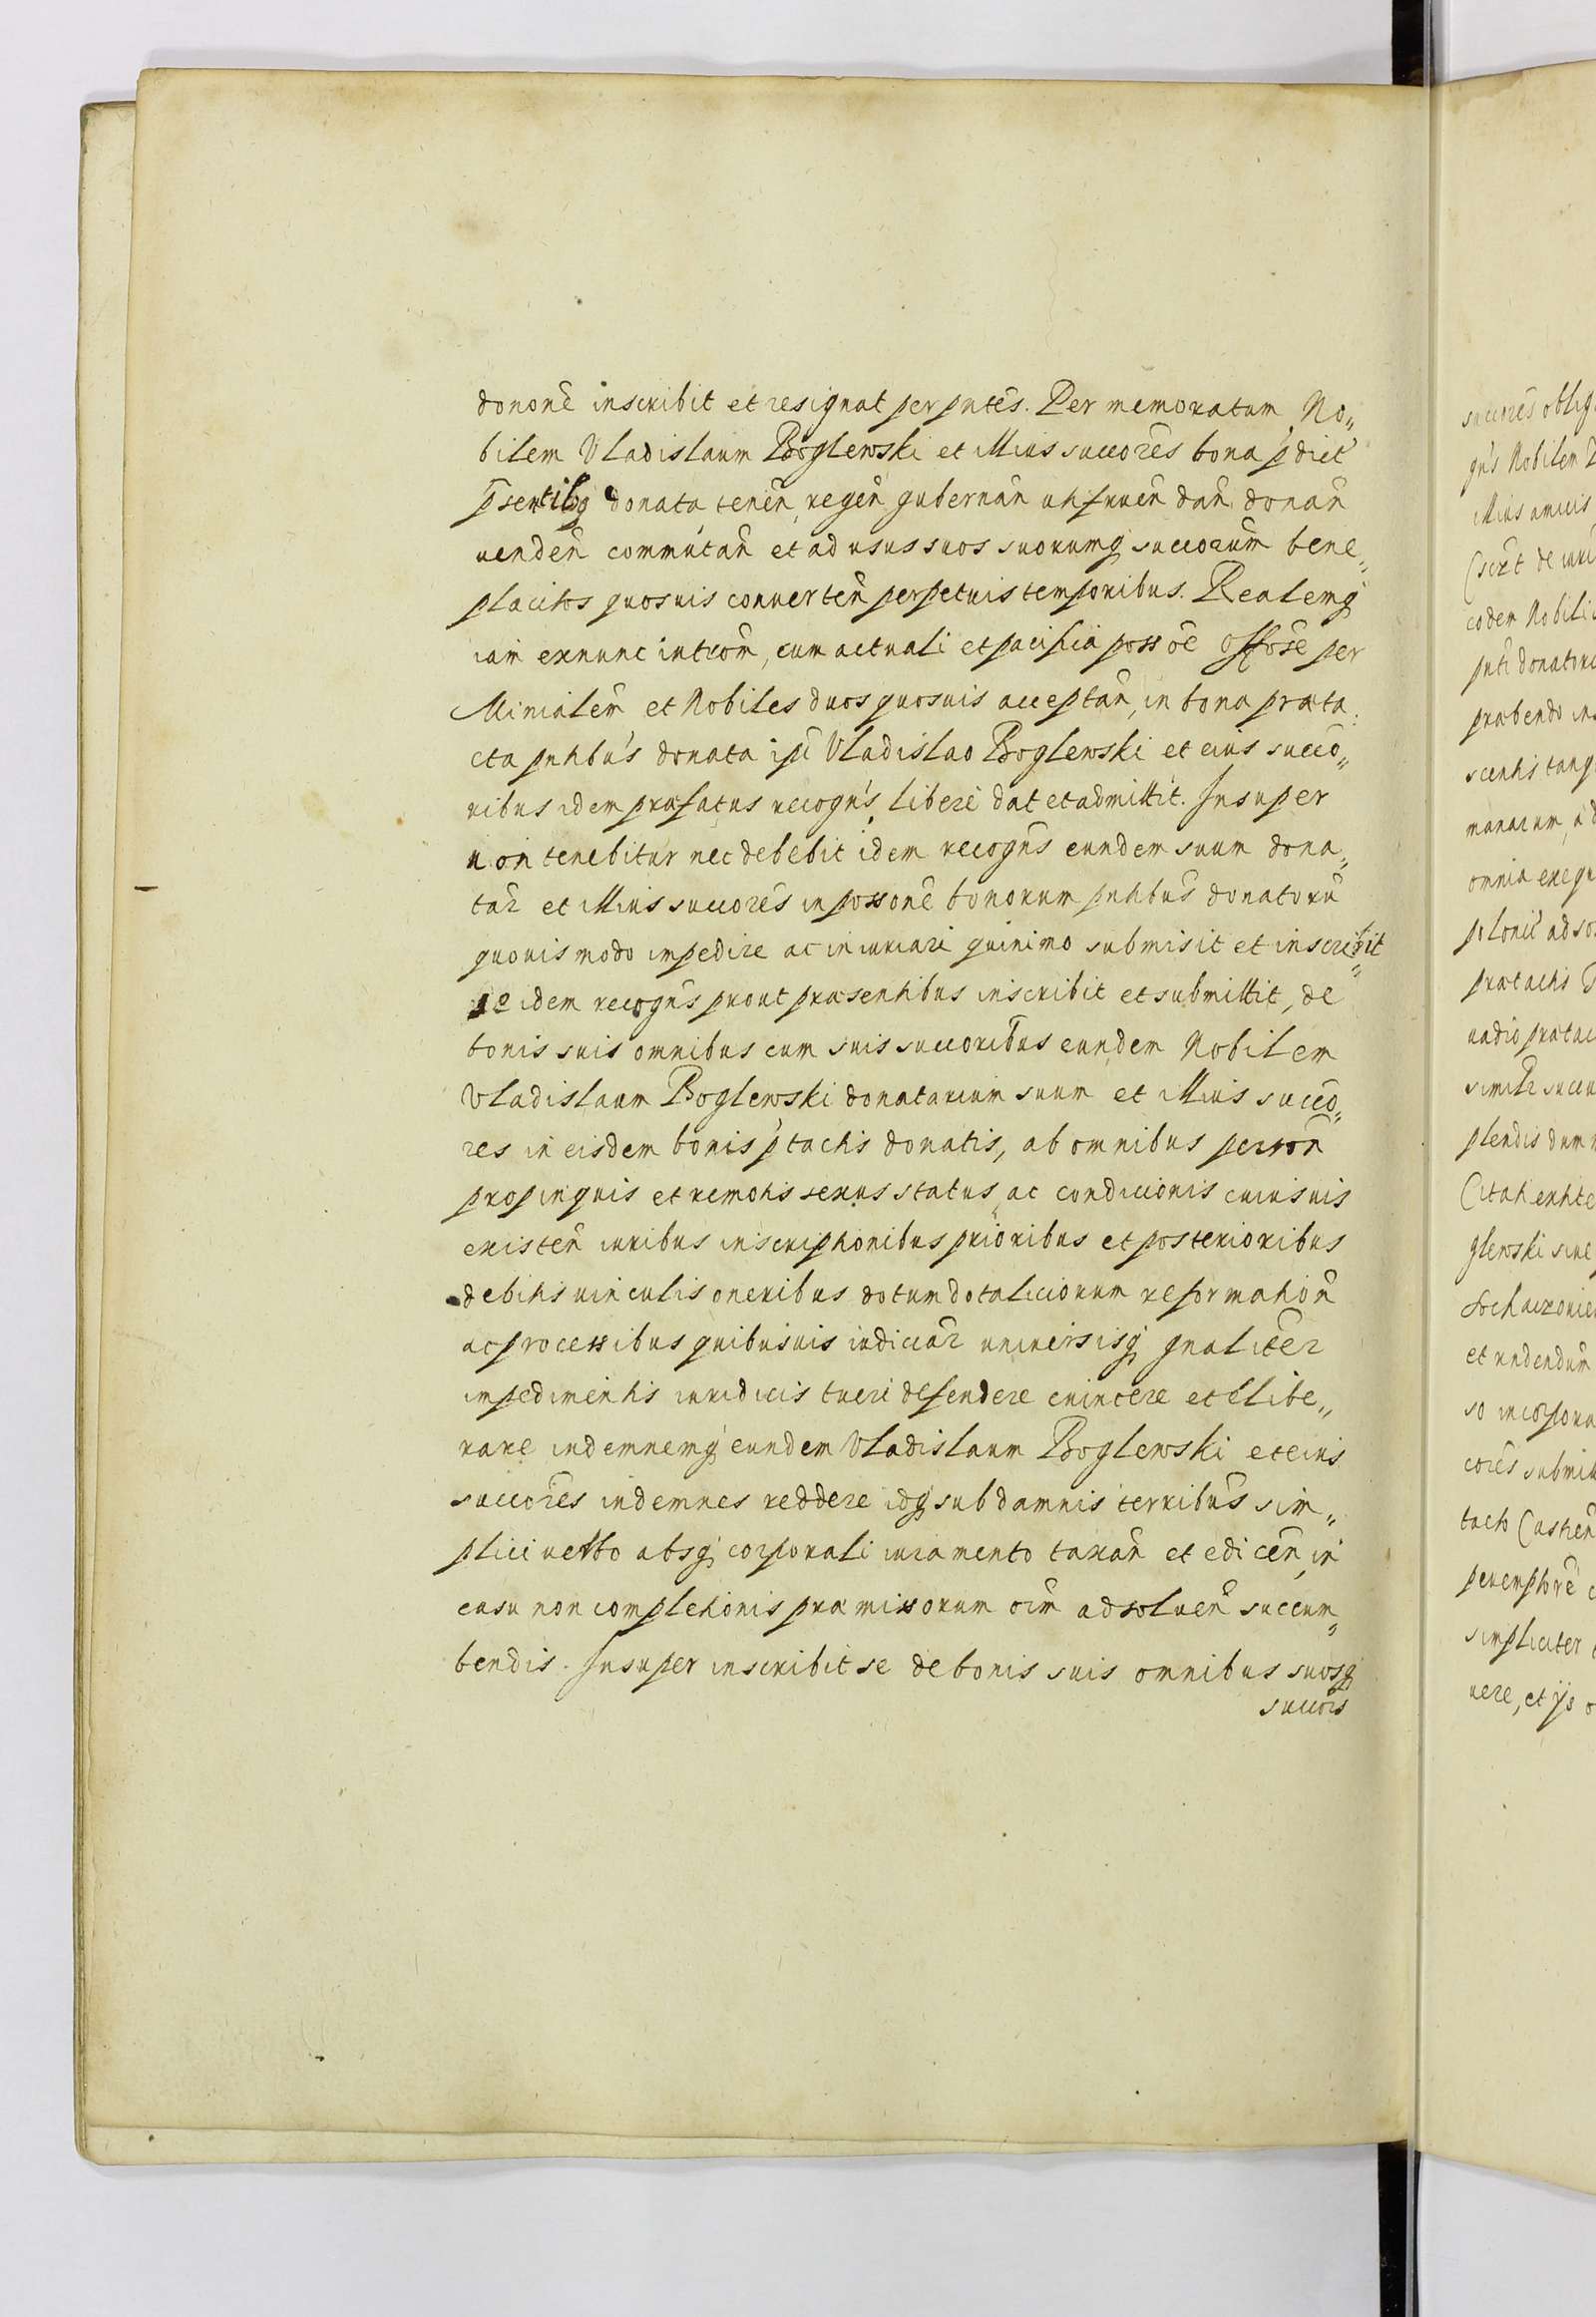 dononē inscribit et resignat per pntēs. Per memoratum No„
bilem Vladislaum Boglewski et illius succorēs bona pdict
psentibq donata tenēn, regēn gubernān utifruēn dān donān
uendēn commutān et ad usus suos suorumq succorūm bene„
placitos quosuis conuertēn perpetuis temporibus. Realemq
iam exnunc introm̄, cum actuali et pacifica possoē Offose per
Minialēm et Nobiles duos quosuis acceptān, in bona præta:
cta pntibūs donata ipi Vladislao Boglewski et eius succo„
ribus idem præfatus recogn̄s libere dat et admittit. Insuper
non tenebitur nec debebit idem recogn̄s eundem suum dona„
tar̄ et illius succorēs in possonē bonorum pntibūs donatorū
quouis modo impedire ac iniuriari quinimo submisit et inscribit„
se idem recogn̄s prout præsentibus inscribit et submittit, de
bonis suis omnibus cum suis succoribūs eundem Nobilem
Vladislaum Boglewski donatarium suum et illius succo„
res in eisdem bonis ptactis donatis, ab omnibus person̄
propinquis et remotis sexus status ac condicionis cuiusuis
existēn iuribus inscriptionibus prioribus et posterioribus
debitis uinculis oneribus dotum dotaliciorum reformation̄
ac processibus quibusuis iudiciar̄ uniuersisq gnaliter
impedimentis iuridicis tueri defendere euincere et elibe„
rare indemnemq eundem Vladislaum Boglewski et eius
succorēs indemnes reddere idq sub damnis terribūs sim„
plici uerbo absq corporali iuramento taxān et edicēn, in
casu non completionis præmissorum oīm adsoluēn succum„
bendis. Insuper inscribit se de bonis suis omnibus suosq
succors
succorēs oblig
gn̄s Nobilem
illius amicis
eodem Nobili
præbendo in
scentis tanq
omnia exequ
prætactis
uadio prætac
plendis dum
glewski siue
et undendūm
so incorpora
corēs submitt
simpliciter
uere, et ijs